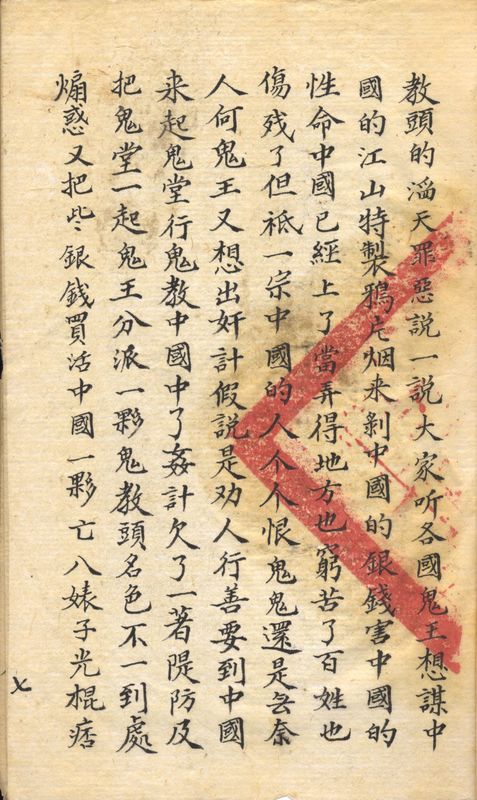 教頭的滔天罪惡説一説大家听各國鬼王想謀中
國的江山特製鴉片烟来剝中國的銀錢害中國的
性命中國已經上了當弄得地方也窮苦了百姓也
傷残了但祗一宗中國的人个个恨鬼鬼還是無奈
人何鬼王又想出奸計假説是劝人行善要到中國
来起鬼堂行鬼教中國中了姦計欠了一著隄防及
把鬼堂一起鬼王分派一夥鬼教頭名色不一到處
煽惑又把些銀錢買活中國一夥亡八婊子光棍痞